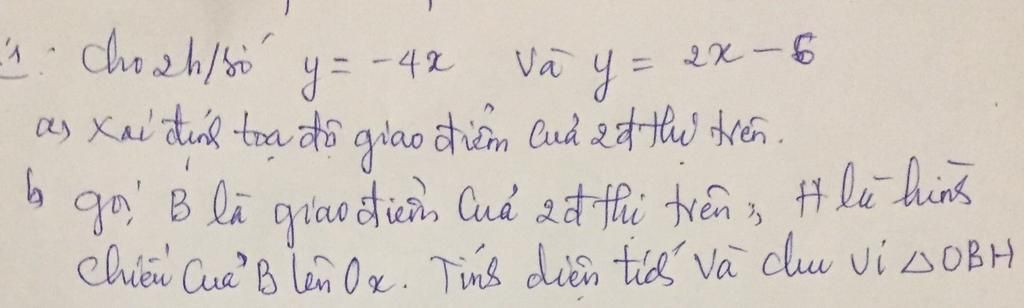 1: Cho 2h/số y = -4x và y = 2x - 6
a) Xác định toạ độ giao điểm của 2 đ thị trên.
b gọi B là giao điểm của 2 đ thị trên, H là hình
chiếu của B lên Ox. Tính diện tích và chu vi △OBH